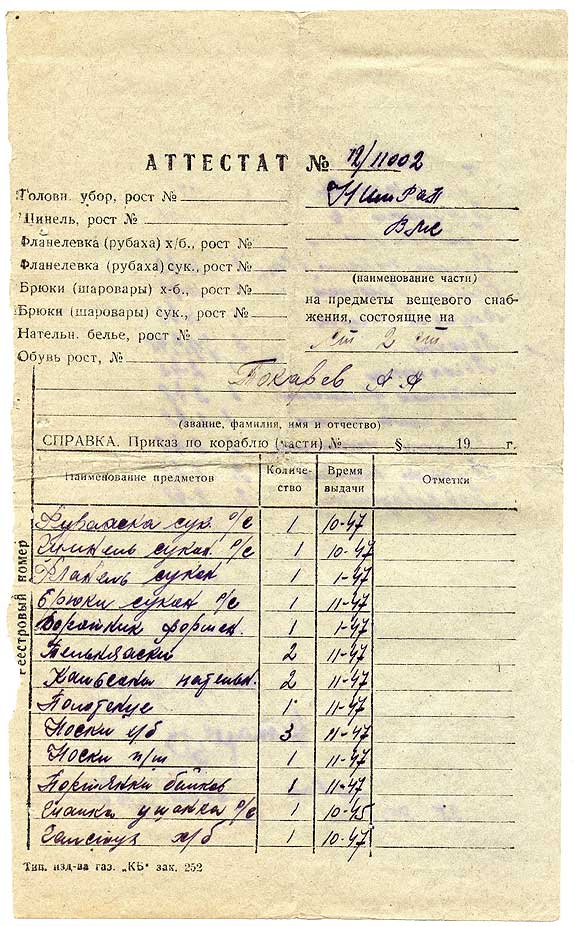 АТТЕСТАТ № 12/11002
Головн. убор, рост №
Шинель, рост №
Фланелевка (рубаха) х/б., рост №
Фланелевка (рубаха) сук., рост №
Брюки (шаровары) х-б., рост №
Брюки (шаровары) сук., рост №
Нательн. белье, рост №
Обувь рост, №
(наименование части)
на предметы вещевого снаб-
жения, состоящие на
ст 2 ст
Токарев А А
(звание, фамилия, имя и отчество)
СПРАВКА. Приказ по кораблю (части) № § 19 г.
Реестровый номер
Наименование предметов Количе-ство Время выдачи Отметки
Фуражка сук. б/с 1 10-47
Шинель сукон. б/с 1 10-47
Фланель сукон 1 1-47
Брюки сукон б/с 1 11-47
Воротник формен. 1 1-47
Тельняшки 2 11-47
Кальсоны нательн. 2 11-47
Полотенце 1 11-47
Носки х/б 3 11-47
Носки п/ш 1 11-47
Портянки байков 1 11-47
Шапка ушанка б/с 1 10-45
Галстук х/б 1 10-47
Тип. изд-ва газ. „КБ" зак. 252